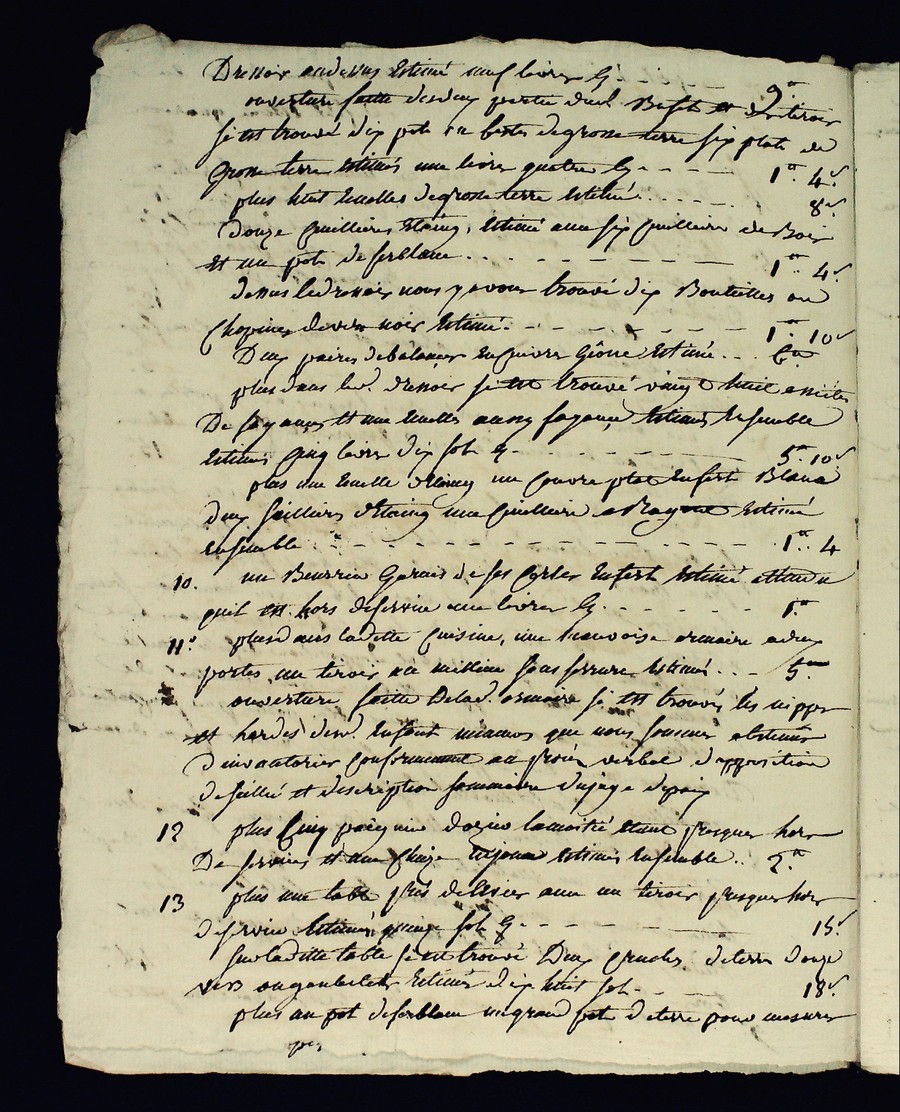 Dressoir audessus Estimé neuf livres Cy - - - 9.tt
ouverture faitte desdeux portes dud. Buffet et des tiroirs
se est trouvé dix pots ou de grosse terre six plats de
grosse terre Estimés une livre quatre Cy - - - - 1.tt 4.s
plus huit Ecuelles de grosse terre Estimé. . . . . - - . 8.s
Douze Cuillieres Etaing, Estimé avec six Cuillieres de Bois
et un pot de ferblanc. . . . - - - - - 1.tt 4.s
dessus le dressoir nous y avons trouvé dix Bouteilles ou
Chopines de verre noir Estimé. - - - - - - - 1.tt 10s
Deux paires de balances En Cuivre Jeaune Estimé. . . 6.tt
plus dans led. dressoir se est trouvé vingt huit assiettes
De fayance et une Ecuelle aussy fayance Estimés Ensemble
Estimés Cinq livres dix sols Cy - - - - 5.tt 10s
plus une Ecuelle d'Etaing un Couvre plat En fert Blanc
deux sallieres d'Etaing une Cuilliere a Ragout Estimé
Ensemble - - - - - - - - - - 1.tt 4
10. un Garnis de ses Cercles En fert Estimé attendu
quil est hors de service une livre Cy. - - - - - 1.tt
11.° plus dans laditte Cuisine, une mauvaise armoire a deux
portes un tiroir au millieu sans serrure Estimé. . . - 5.tt
ouverture faitte De lad. armoire se est trouvé les nippes
et hardes desd. Enfant mineurs que nous sommes abstenus
d'inventorier Conformement au procès verbal d'apposition
de scellé et description sommaire du juge de paix
12 plus Cinq la moitié etant presques hors
De service et une Chaize Estimés Ensemble. . 2.tt
13 plus une table près de avec un tiroir presque hors
de service Estimés quinze sols Cy - - - - - - 15.s
sur laditte table se est trouvé Deux Cruches de terre douze
vers ou goubelets Estimés dix huit sols - - - - 18.s
plus un pot de ferblanc un grand pot de terre pour mesurer